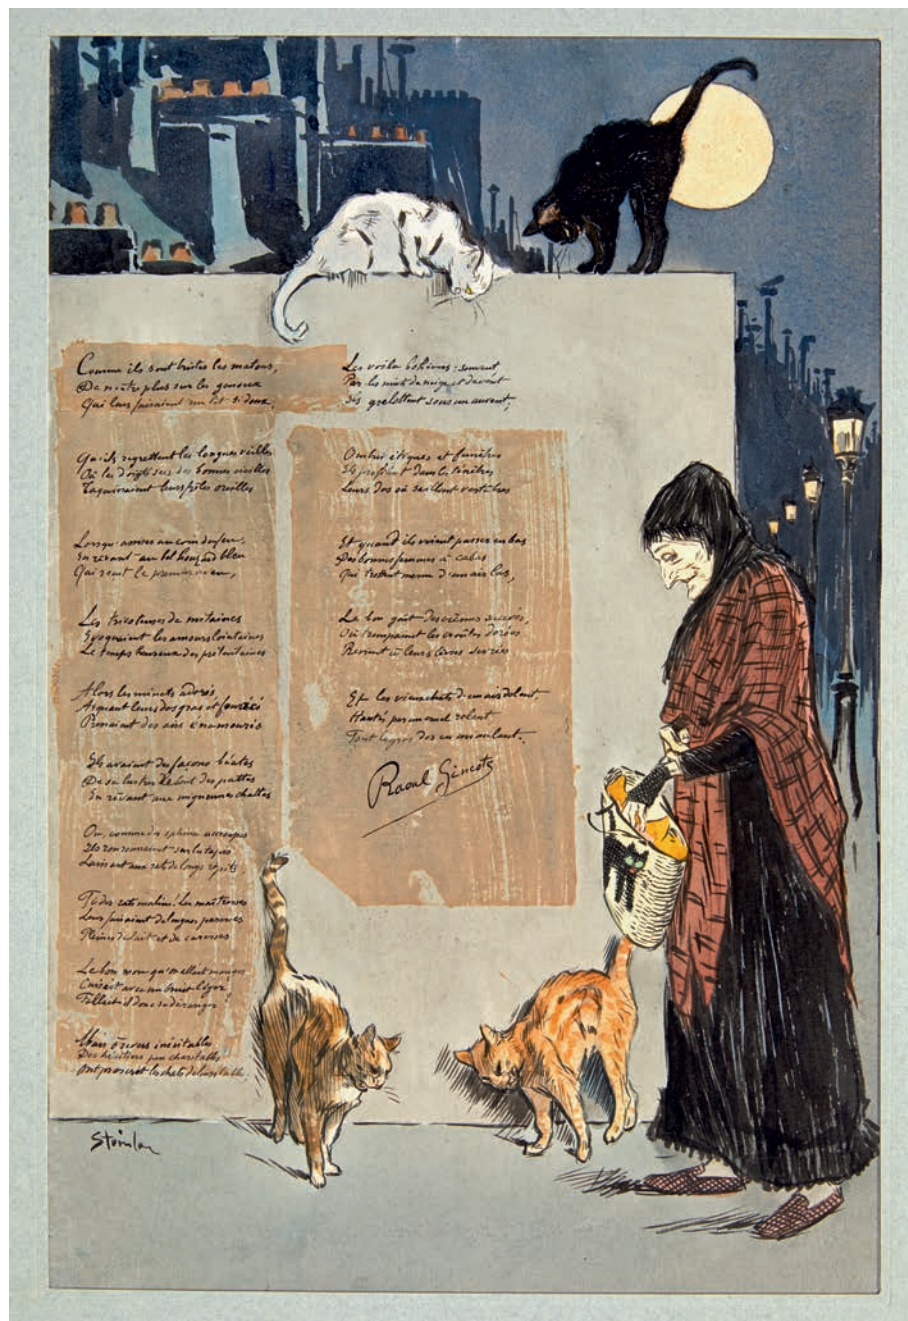 Comme ils sont tristes les matous,
De n'être plus sur les genoux
Qui leur faisaient un lit si doux,
Qu'ils regrettent les longues veilles
Où les doigts secs des bonnes vieilles
Taquinaient leurs frêles oreilles
Lorsqu'assises au coin du feu,
En rêvant au bel houzard bleu
Qui reçut le premier aveu,
Les tricoteuses de mitaines
Evoquaient les amours lointaines
Le temps heureux des prétentaines
Alors les minets adorés
Arquant leurs dos gras et fourrés
Prenaient des airs énamourés
Ils avaient des façons béates
De se lustrer le bout des pattes
En rêvant aux mignonnes chattes
Ou, comme des sphinx accroupis
Ils ronronnaient sur les tapis
Laissant aux rats de longs répits
Fi des rats malins! Les maîtresses
Leur faisaient de longues paresses
Pleines de lait et de caresses
Le bon mou qu'on allait manger
Cuisait avec un bruit léger
Fallait-il donc se déranger?
Mais ô revers inévitables
Des héritiers peu charitables
Ont proscrit les chats
Les voilà bohèmes: souvent,
Par les nuits de neige et de vent
Ils grelottent sous un auvent,
Ombres étiques et funèbres
Ils profilent dans les ténèbres
Leurs dos où saillent vertèbres
Et quand ils voient passer en bas
Des bonnes femmes à cabas
Qui trottent menu d'un air las,
Le bon goût des crèmes sucrées,
Où trempaient les croûtes dorées
Revient à leurs lèvres sevrées
Et les vieux chats d'un air dolent
Hantés par un cruel relent
Font le gros dos en miaulant.
Raoul Gineste
Steinlen